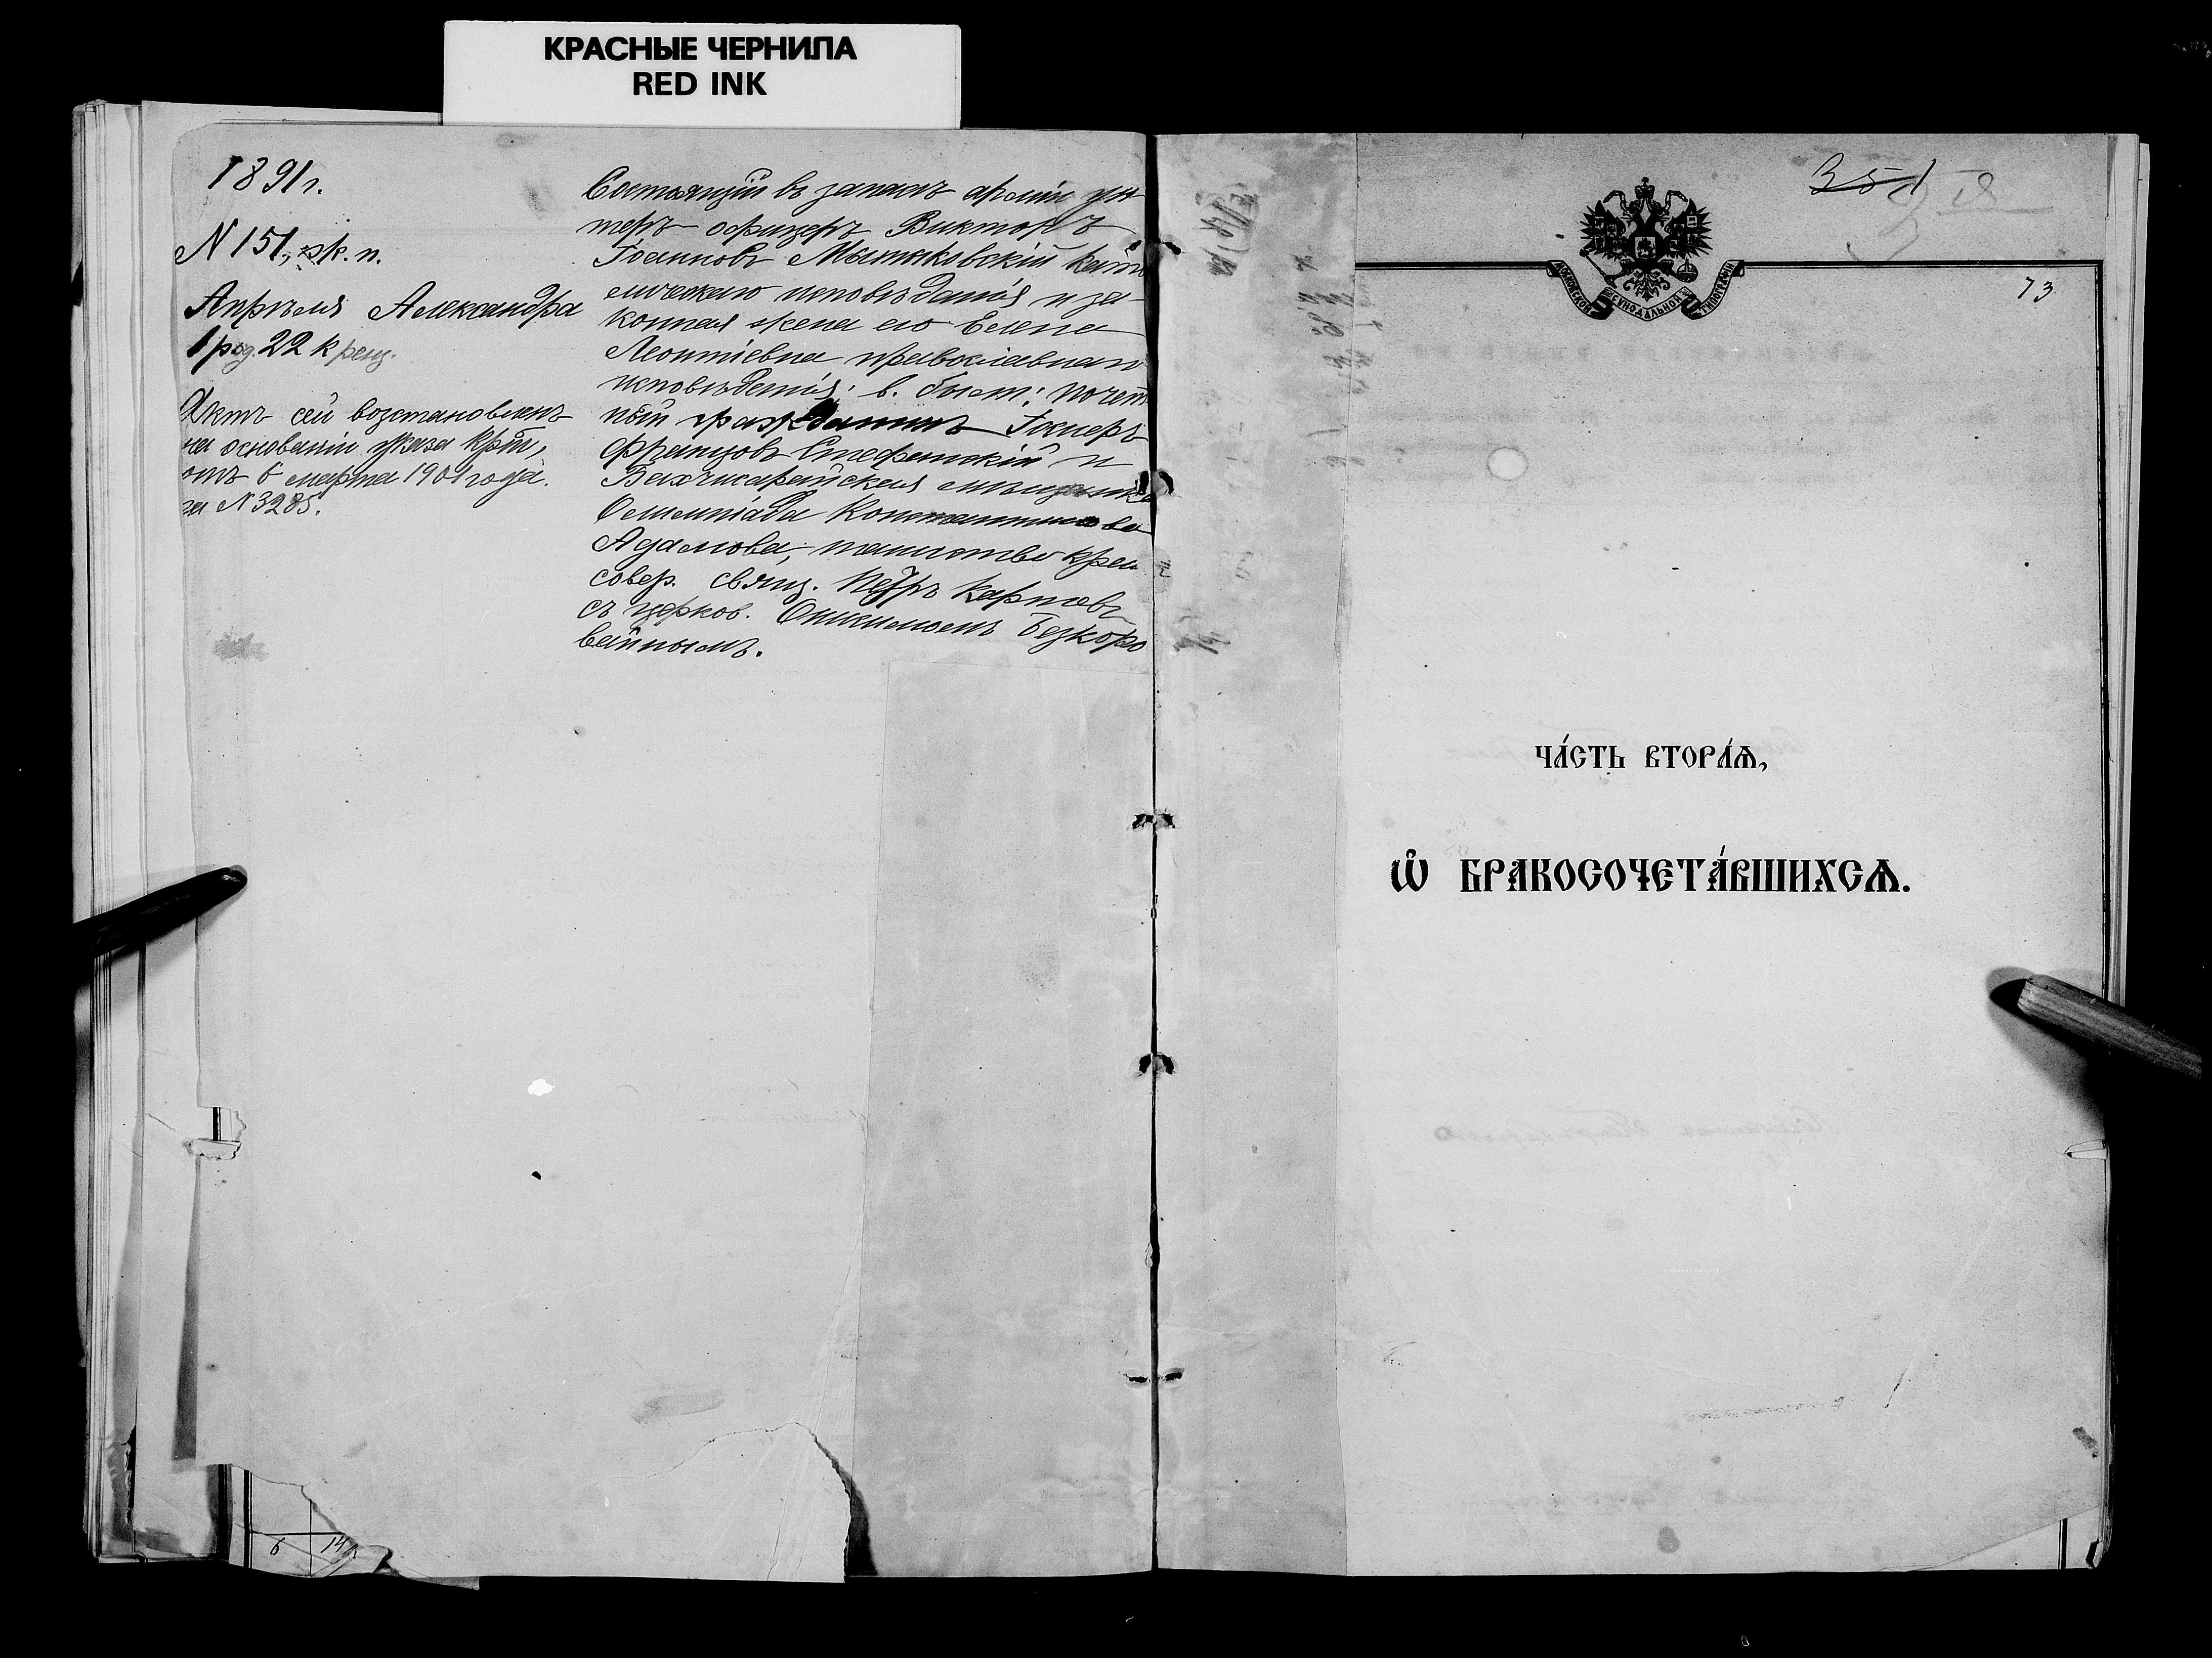 КРАСНЫЕ ЧЕРНИЛА
RED INK
1891 г.
N 151, ж. п.
Апрѣля Александра
1 род. 22 крещ.
Актъ сей возстановленъ
на основаніи указа
отъ 6 марта 1901 года
за N 3285.
Состоящій въ запасѣ арміи ун
теръ офицеръ Викторъ
Іоанновъ като
лическаго исповѣданія и за-
конная жена его Елена
Леонтіевна православнаго
исповѣданія; в. были: почет
ный гражданинъ
Францовъ Стефанскій и
Бахчисарайская мѣщанка
Олимпіада Константинова
Адамова, таинство крещ
совер. свящ. Петръ Карповъ
съ церков. Безкоро
вайнымъ.
6 14
351
73
МОСКОВСКОЙ СѴНОДАЛЬНОЙ ТИПОГРАФІИ
ЧА́СТЬ ВТОРА́Ѧ,
Ѡ҆ БРАКОСОЧЕТА́ВШИХСѦ.